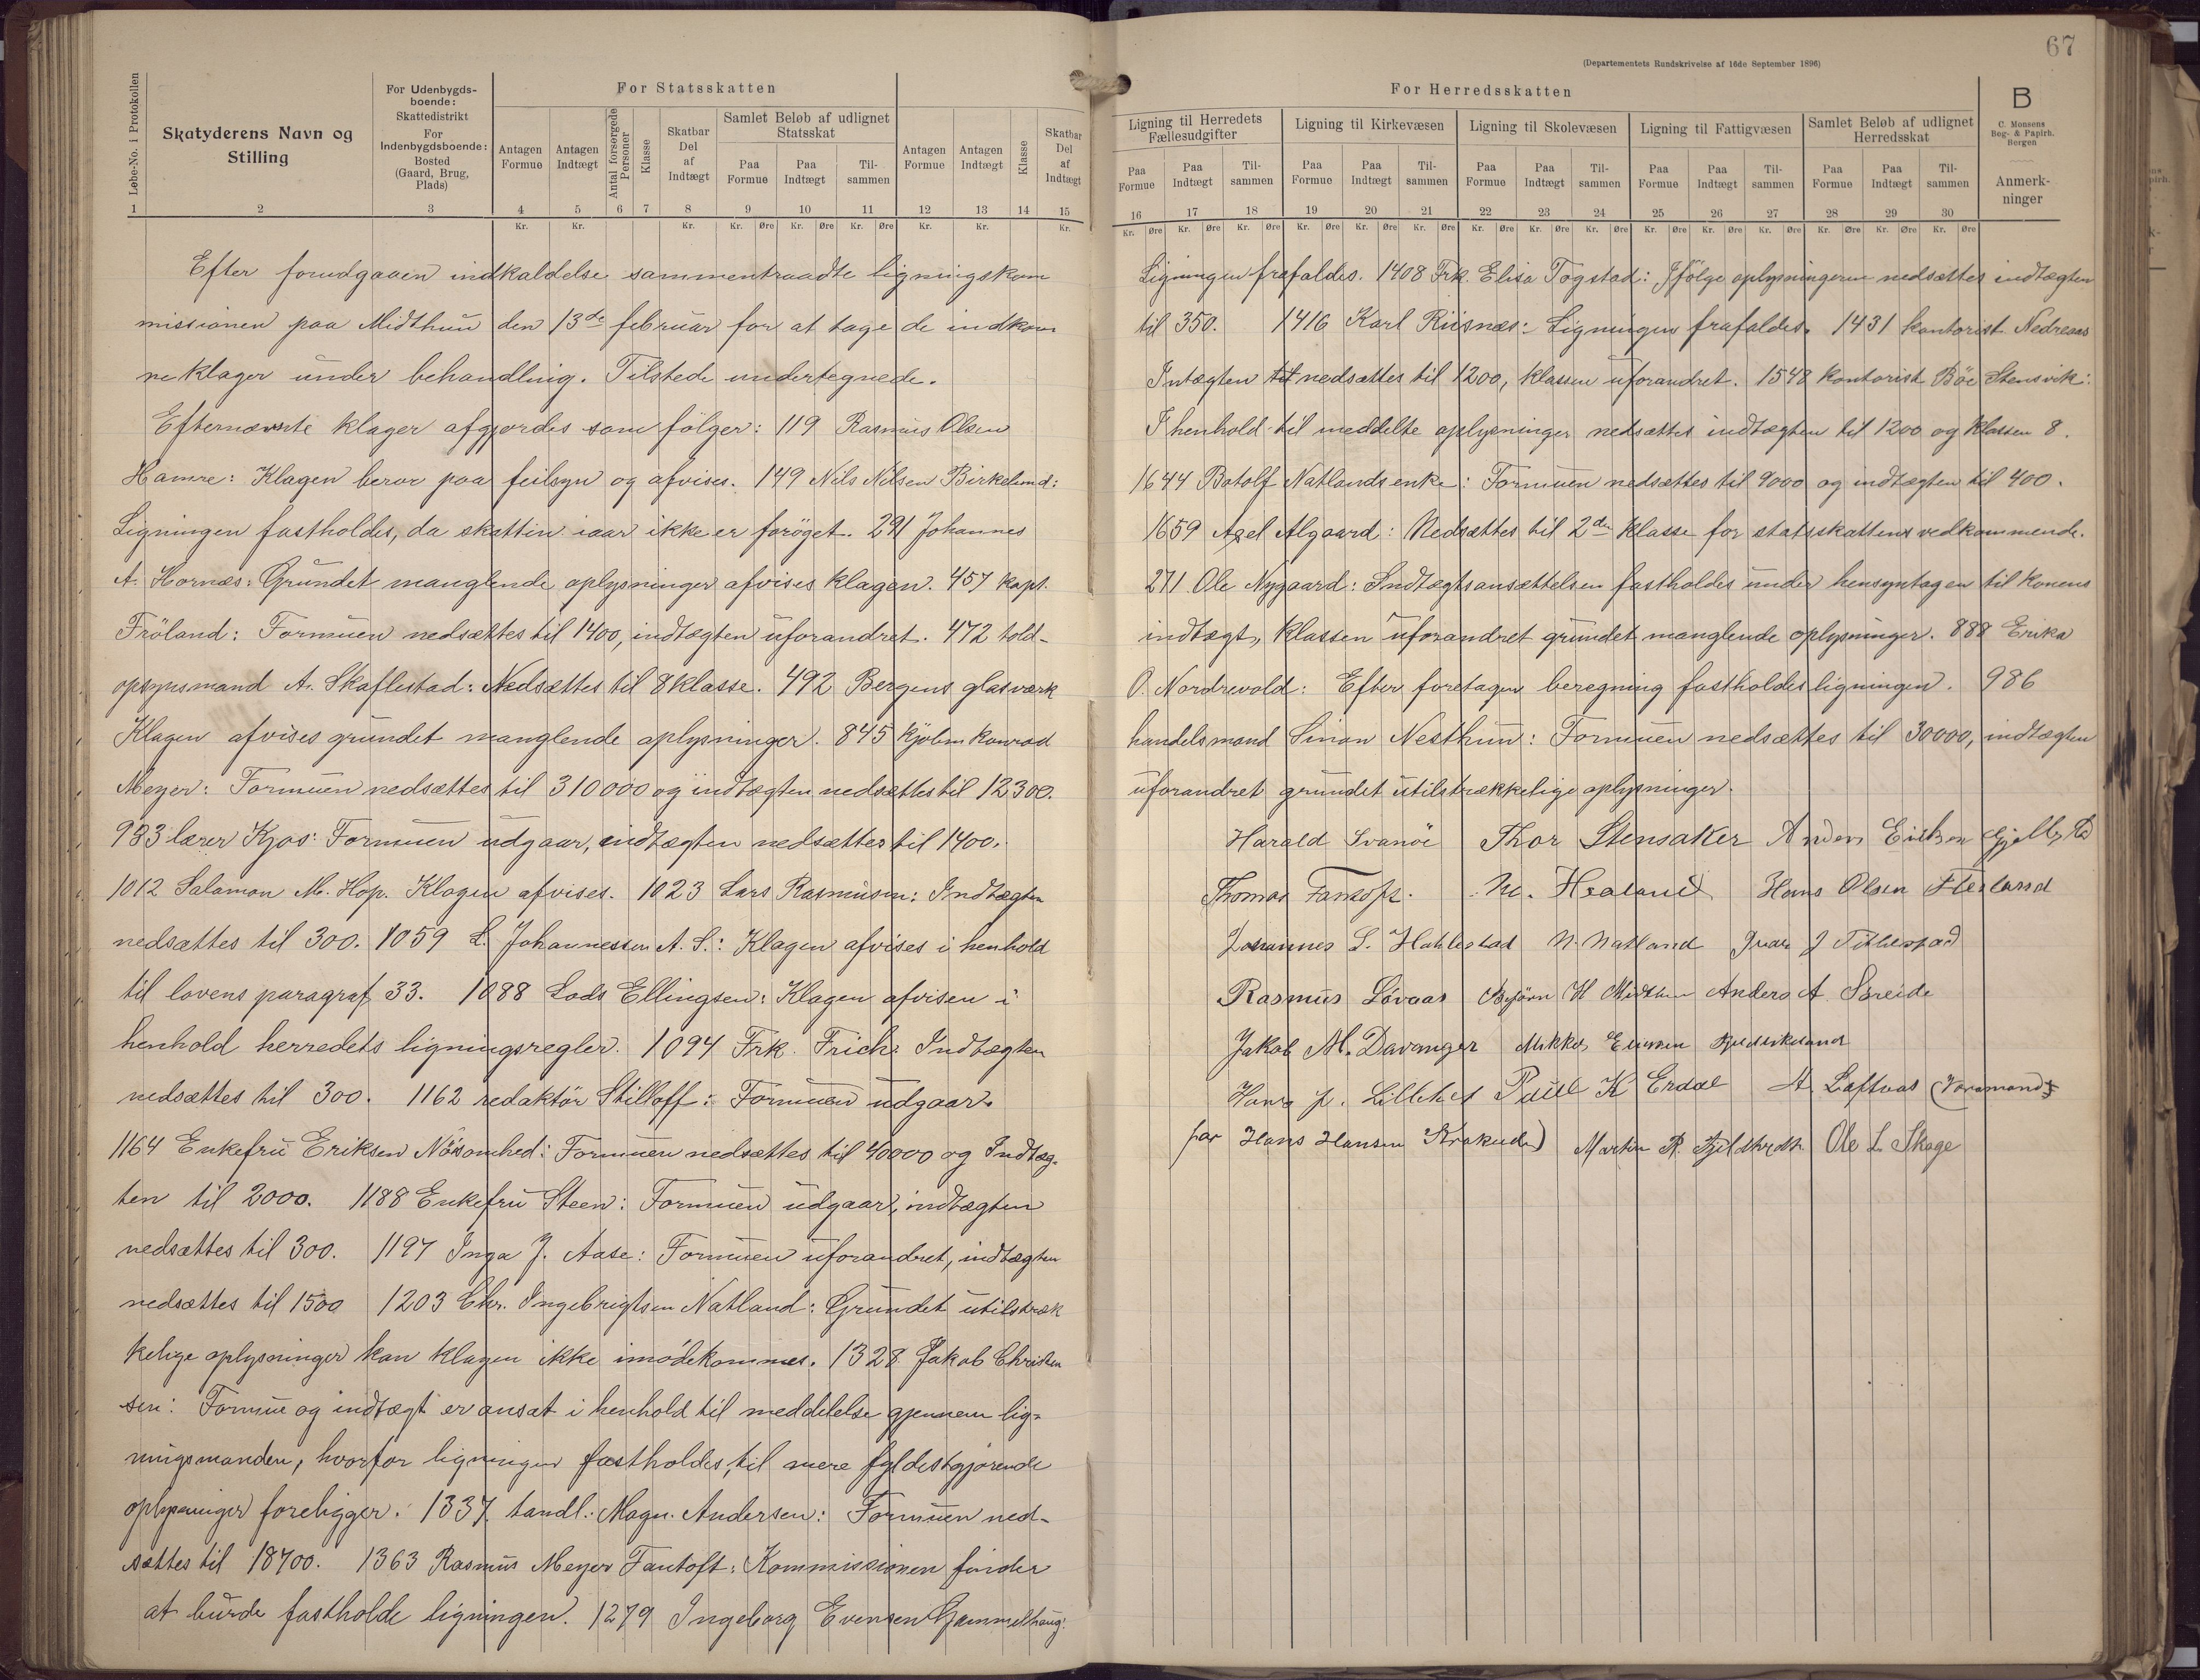 67
(Departementets Rundskrivelse af 16de September 1896)
Løbe-No. i Protokollen
Skatyderens Navn og Stilling
For Udenbygdsboende: Skattedistrikt
For Indenbygdsboende: Bosted (Gaard, Brug, Plads)
For Statsskatten
Antagen Formue
Antagen Indtægt
Antal forsørgede Personer
Klasse
Skatbar Del af Indtægt
Samlet Beløb af udlignet Statsskat
Paa Formue
Paa Indtægt
Tilsammen
Antagen Formue
Antagen Indtægt
Klasse
Skatbar Del af Indtægt
1 2 3 4 5 6 7 8 9 10 11 12 13 14 15
Kr. Kr. Kr. Kr. Øre Kr. Øre Kr. Øre Kr. Kr. Kr.
Efter forudgaaen indkaldelse sammentraadte ligningskom
missionen paa Midthun den 13de februar for at tage de indkom
ne klager under behandling. Tilstede undertegnede.
Efternævnte klager afgjordes som følger: 119 Rasmus Olsen
Hamre: Klagen beror paa feilsyn og afvises. 149 Nils Nilsen Birkelund:
Ligningen fastholdes, da skatten iaar ikke er forøget. 291 Johannes
A. Hornæs: Grundet manglende oplysninger afvises klagen. 457 kapt.
Frøland: Formuen nedsættes til 1400, indtægten uforandret. 472 told-
opsynsmand A. Skaflestad: Nedsættes til 8 klasse. 492 Bergens glasværk
Klagen afvises grundet manglende oplysninger. 845 kjøbm Konrad
Meyer: Formuen nedsættes til 310000 og indtægten nedsættes til 12300.
983 lærer Kjos: Formuen udgaar, indtægten nedsættes til 1400.
1012 Salamon M. Hop. Klagen afvises. 1023 Lars Rasmusen: Indtægten
nedsættes til 300. 1059 L. Johannessen A. S.: Klagen afvises i henhold
til lovens paragraf 33. 1088 Lods Ellingsen: Klagen afvisen i
henhold herredets ligningsregler. 1094 Frk. Frich: Indtægten
nedsættes til 300. 1162 redaktør Stilloff: Formuen udgaar.
1164 Enkefru Eriksen Nøisomhed: Formuen nedsættes til 40000 og Indtæg-
ten til 2000. 1188 Enkefru Steen: Formuen udgaar, indtægten
nedsættes til 300. 1197 Inga J. Aase: Formuen uforandret, indtægten
nedsættes til 1500 1203 Chr. Ingebrigtsen Natland: Grundet utilstræk
kelige oplysninger kan klagen ikke imødekommes. 1328 Jakob Christen
sen: Formue og indtægt er ansat i henhold til meddelelse gjennem lig-
ningsmanden, hvorfor ligningen fastholdes, til mere fyldestgjørende
oplysninger foreligger. 1337 tandl. Magn. Andersen: Formuen ned-
sættes til 18700. 1363 Rasmus Meyer Fantoft: Kommissionen finder
at burde fastholde ligningen. 1279 Ingeborg Evensen Gammelhaug:
For Herredsskatten
B
C. Monsens Bog- & Papirh. Bergen
Ligning til Herredets Fællesudgifter
Ligning til Kirkevæsen
Ligning til Skolevæsen
Ligning til Fattigvæsen
Samlet Beløb af udlignet Herredsskat
Anmerkninger
Paa Formue Paa Indtægt Tilsammen Paa Formue Paa Indtægt Tilsammen Paa Formue Paa Indtægt Tilsammen Paa Formue Paa Indtægt Tilsammen Paa Formue Paa Indtægt Tilsammen
16 17 18 19 20 21 22 23 24 25 26 27 28 29 30
Kr. Øre Kr. Øre Kr. Øre Kr. Øre Kr. Øre Kr. Øre Kr. Øre Kr. Øre Kr. Øre Kr. Øre Kr. Øre Kr. Øre Kr. Øre Kr. Øre Kr. Øre
Ligningen frafaldes. 1408 Frk. Elisa Togstad: Ifølge oplysningerne nedsættes indtægten
til 350. 1416 Karl Riisnæs: Ligningen frafaldes. 1431 kontorist Nedreaas
Intægten til nedsættes til 1200, klassen uforandret. 1548 kontorist Bøe Stensvik:
I henhold til meddelte oplysninger nedsættes indtægten til 1200 og klassen 8.
1644 Botolf Natlands enke: Formuen nedsættes til 9000 og indtægten til 400.
1659 Axel Algaard: Nedsættes til 2den klasse for statsskattens vedkommende.
271 Ole Nygaard: Indtægtsansættelsen fastholdes under hensyntagen til konens
indtægt, klassen uforandret grundet manglende oplysninger. 888 Erika
O. Nordrevold: Efter foretagen beregning fastholdes ligningen. 986
handelsmand Simon Nesthun: Formuen nedsættes til 30000, indtægten
uforandret grundet utilstrækkelige oplysninger.
Harald Svanøe Thor Stensaker Anders Eriksen
Thomas M. Hans Olsen Flesland
Johannes L. N. Natland Ivar J
Rasmus Løvaas Bjørn H Midthun Anders A. Søreide
Jakob M. Davanger Mikkel
Hans J. Paul K Erdal A. Loftaas (Varamand
for Hans Hansen Krokeide) Martin Ole L. Skage